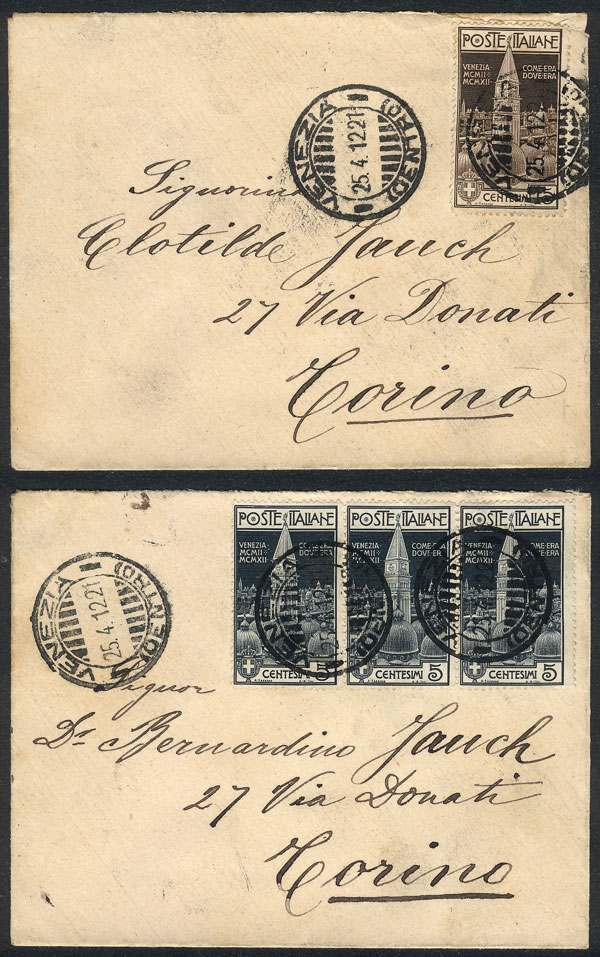 POSTE ITALIANE
VENEZIA COME ERA
MCMII DOVE ERA
MCMXII
CENTESIMI 15
VENEZIA (CENTRO)
25.4.12 21
VENEZIA (CENTRO)
25.4.12
Signorina
Clotilde Jauch
27 Via Donati
Torino
POSTE ITALIANE POSTE ITALIANE POSTE ITALIANE
VENEZIA COME ERA VENEZIA COME ERA VENEZIA COME ERA
MCMII DOVE ERA MCMII DOVE ERA MCMII DOVE ERA
MCMXII MCMXII MCMXII
CENTESIMI 5 CENTESIMI 5 CENTESIMI 5
VENEZIA (CENTRO)
25.4.12 21
Signor
Dr Bernardino Jauch
27 Via Donati
Torino